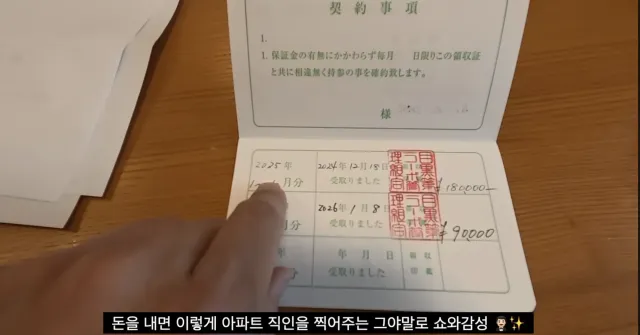 契約事項
1.
1. 保証金の有無にかかわらず毎月 日限りこの領収証
と共に相違無く持参の事を確約致します。
様
2025年 2024年12月18日
月分 受取りました ¥180,000-
2026年1月8日
月分 受取りました ¥90000
年 年 月 日 領収
月分 受取りました 印鑑
돈을 내면 이렇게 아파트 직인을 찍어주는 그야말로 쇼와감성 👨🏻‍⚖️✨